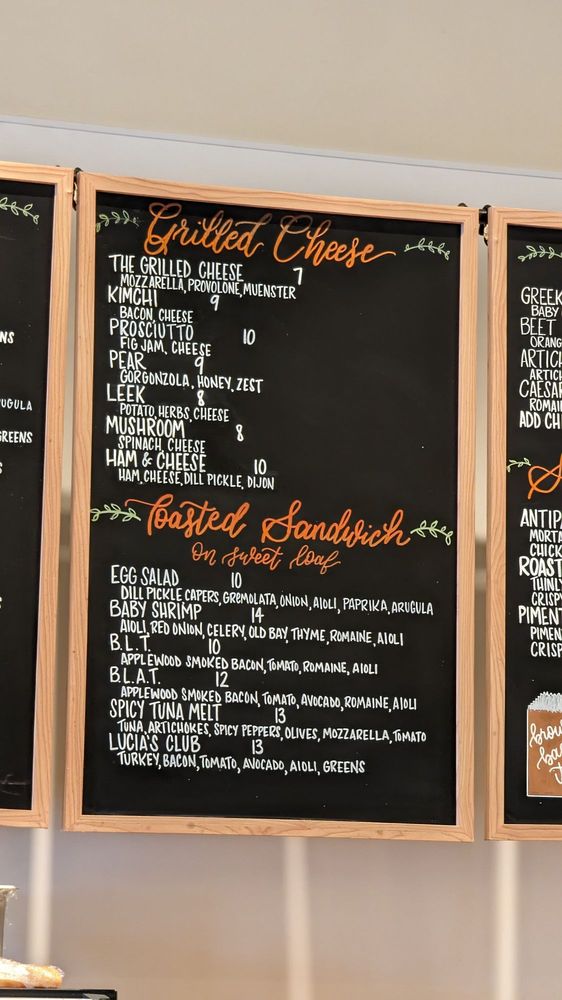 Grilled Cheese
THE GRILLED CHEESE 7
MOZZARELLA, PROVOLONE, MUENSTER
KIMCHI 9
BACON, CHEESE
PROSCIUTTO 10
FIG JAM, CHEESE
PEAR 9
GORGONZOLA, HONEY, ZEST
LEEK 8
POTATO, HERBS, CHEESE
MUSHROOM 8
SPINACH, CHEESE
HAM & CHEESE 10
HAM, CHEESE, DILL PICKLE, DIJON
Toasted Sandwich
on sweet loaf
EGG SALAD 10
DILL PICKLE CAPERS, GREMOLATA, ONION, AIOLI, PAPRIKA, ARUGULA
BABY SHRIMP 14
AIOLI, RED ONION, CELERY, OLD BAY, THYME, ROMAINE, AIOLI
B.L.T. 10
APPLEWOOD SMOKED BACON, TOMATO, ROMAINE, AIOLI
B.L.A.T. 12
APPLEWOOD SMOKED BACON, TOMATO, AVOCADO, ROMAINE, AIOLI
SPICY TUNA MELT 13
TUNA, ARTICHOKES, SPICY PEPPERS, OLIVES, MOZZARELLA, TOMATO
LUCIA'S CLUB 13
TURKEY, BACON, TOMATO, AVOCADO, AIOLI, GREENS
GREEK
BABY
BEET
ORANG
ARTICH
ARTICH
CAESAR
ROMAI
ADD CHI
S
ANTIPA
MORTA
CHICK
ROAST
THINLY
CRISPY
PIMENT
PIMEN
CRISP
GREENS